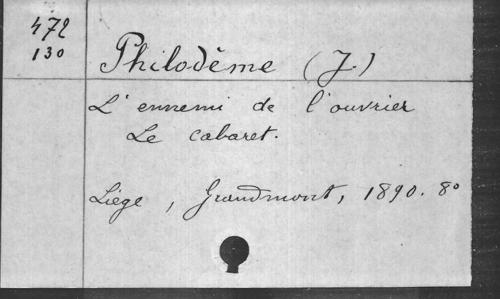 472
130
Philodème (J.)
L'ennemi de l'ouvrier
Le cabaret.
Liège, Grandmont, 1890. 8°